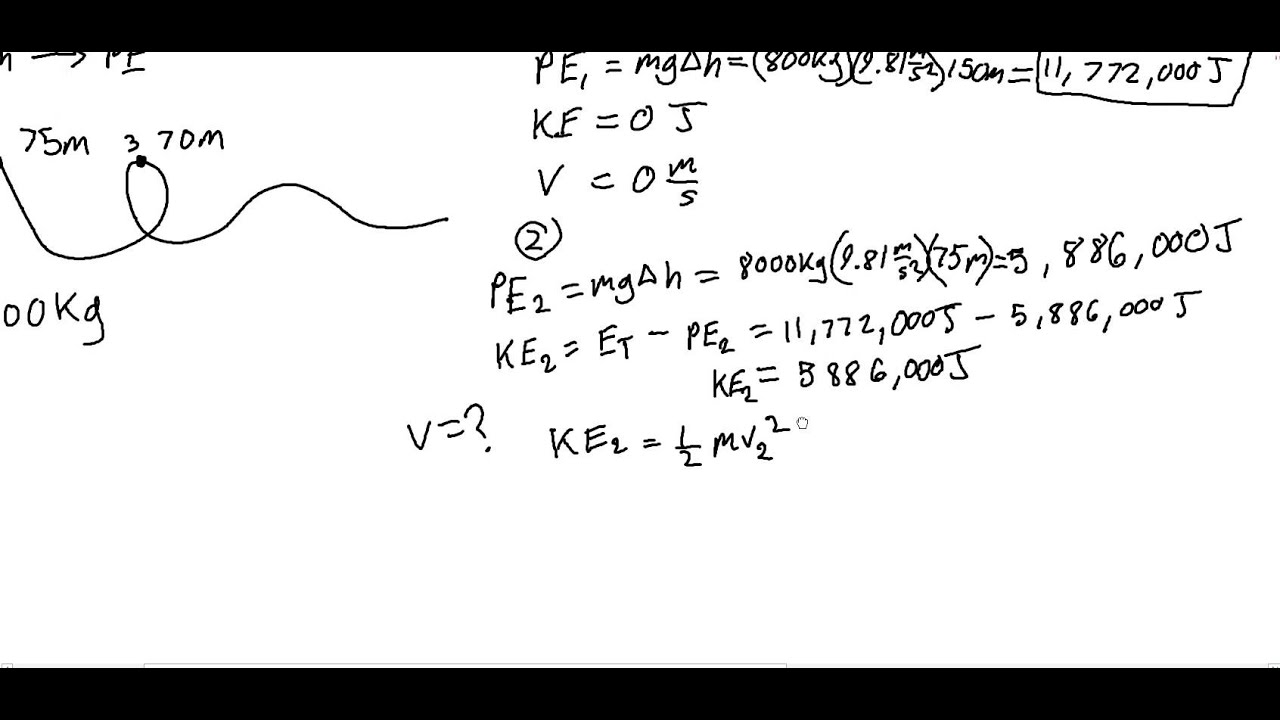 PE₁ = mgΔh = (800Kg)(9.81 m/s²)150m = 11,772,000J
KE = 0 J
V = 0 m/s
75m 3 70m
②
PE₂ = mgΔh = 8000Kg(9.81 m/s²)(75m) = 5,886,000J
00Kg
KE₂ = E_T − PE₂ = 11,772,000J − 5,886,000J
KE₂ = 5886,000J
V=? KE₂ = 1/2 mv₂²